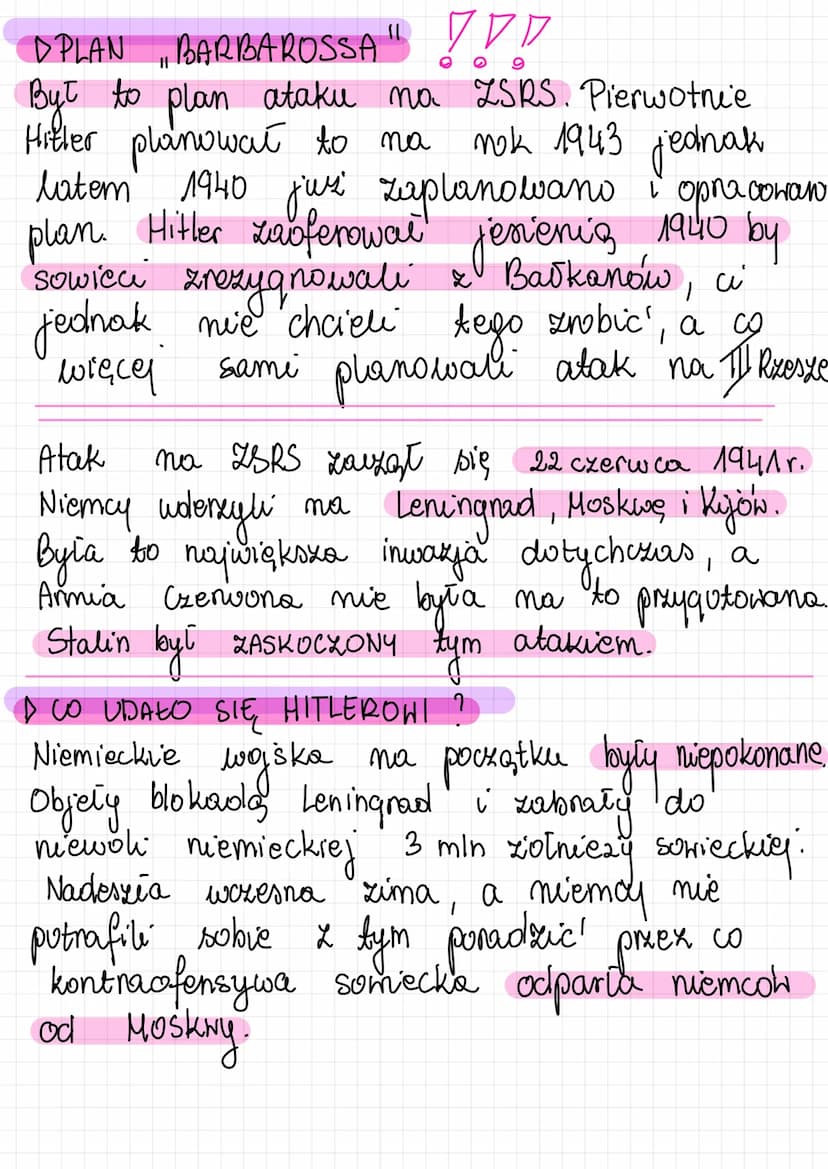 ▷ PLAN „BARBAROSSA" !!!
Był to plan ataku na ZSRS. Pierwotnie
Hitler planował to na rok 1943 jednak
latem 1940 już zaplanowano i opracowano
plan. Hitler zaoferował jesienią 1940 by
sowieci zrezygnowali z Bałkanów, ci
jednak nie chcieli tego zrobić, a co
więcej sami planowali atak na III Rzeszę
Atak na ZSRS zaczął się 22 czerwca 1941r.
Niemcy uderzyli na Leningrad, Moskwę i Kijów.
Była to największa inwazja dotychczas, a
Armia Czerwona nie była na to przygotowana.
Stalin był ZASKOCZONY tym atakiem.
▷ CO UDAŁO SIĘ HITLEROWI ?
Niemieckie wojska na początku były niepokonane.
Objęły blokadą Leningrad i zabrały do
niewoli niemieckiej 3 mln żołnierzy sowieckiej.
Nadeszła wczesna zima, a niemcy nie
potrafili sobie z tym poradzić przez co
kontraofensywa sowiecka odparła niemców
od Moskwy.